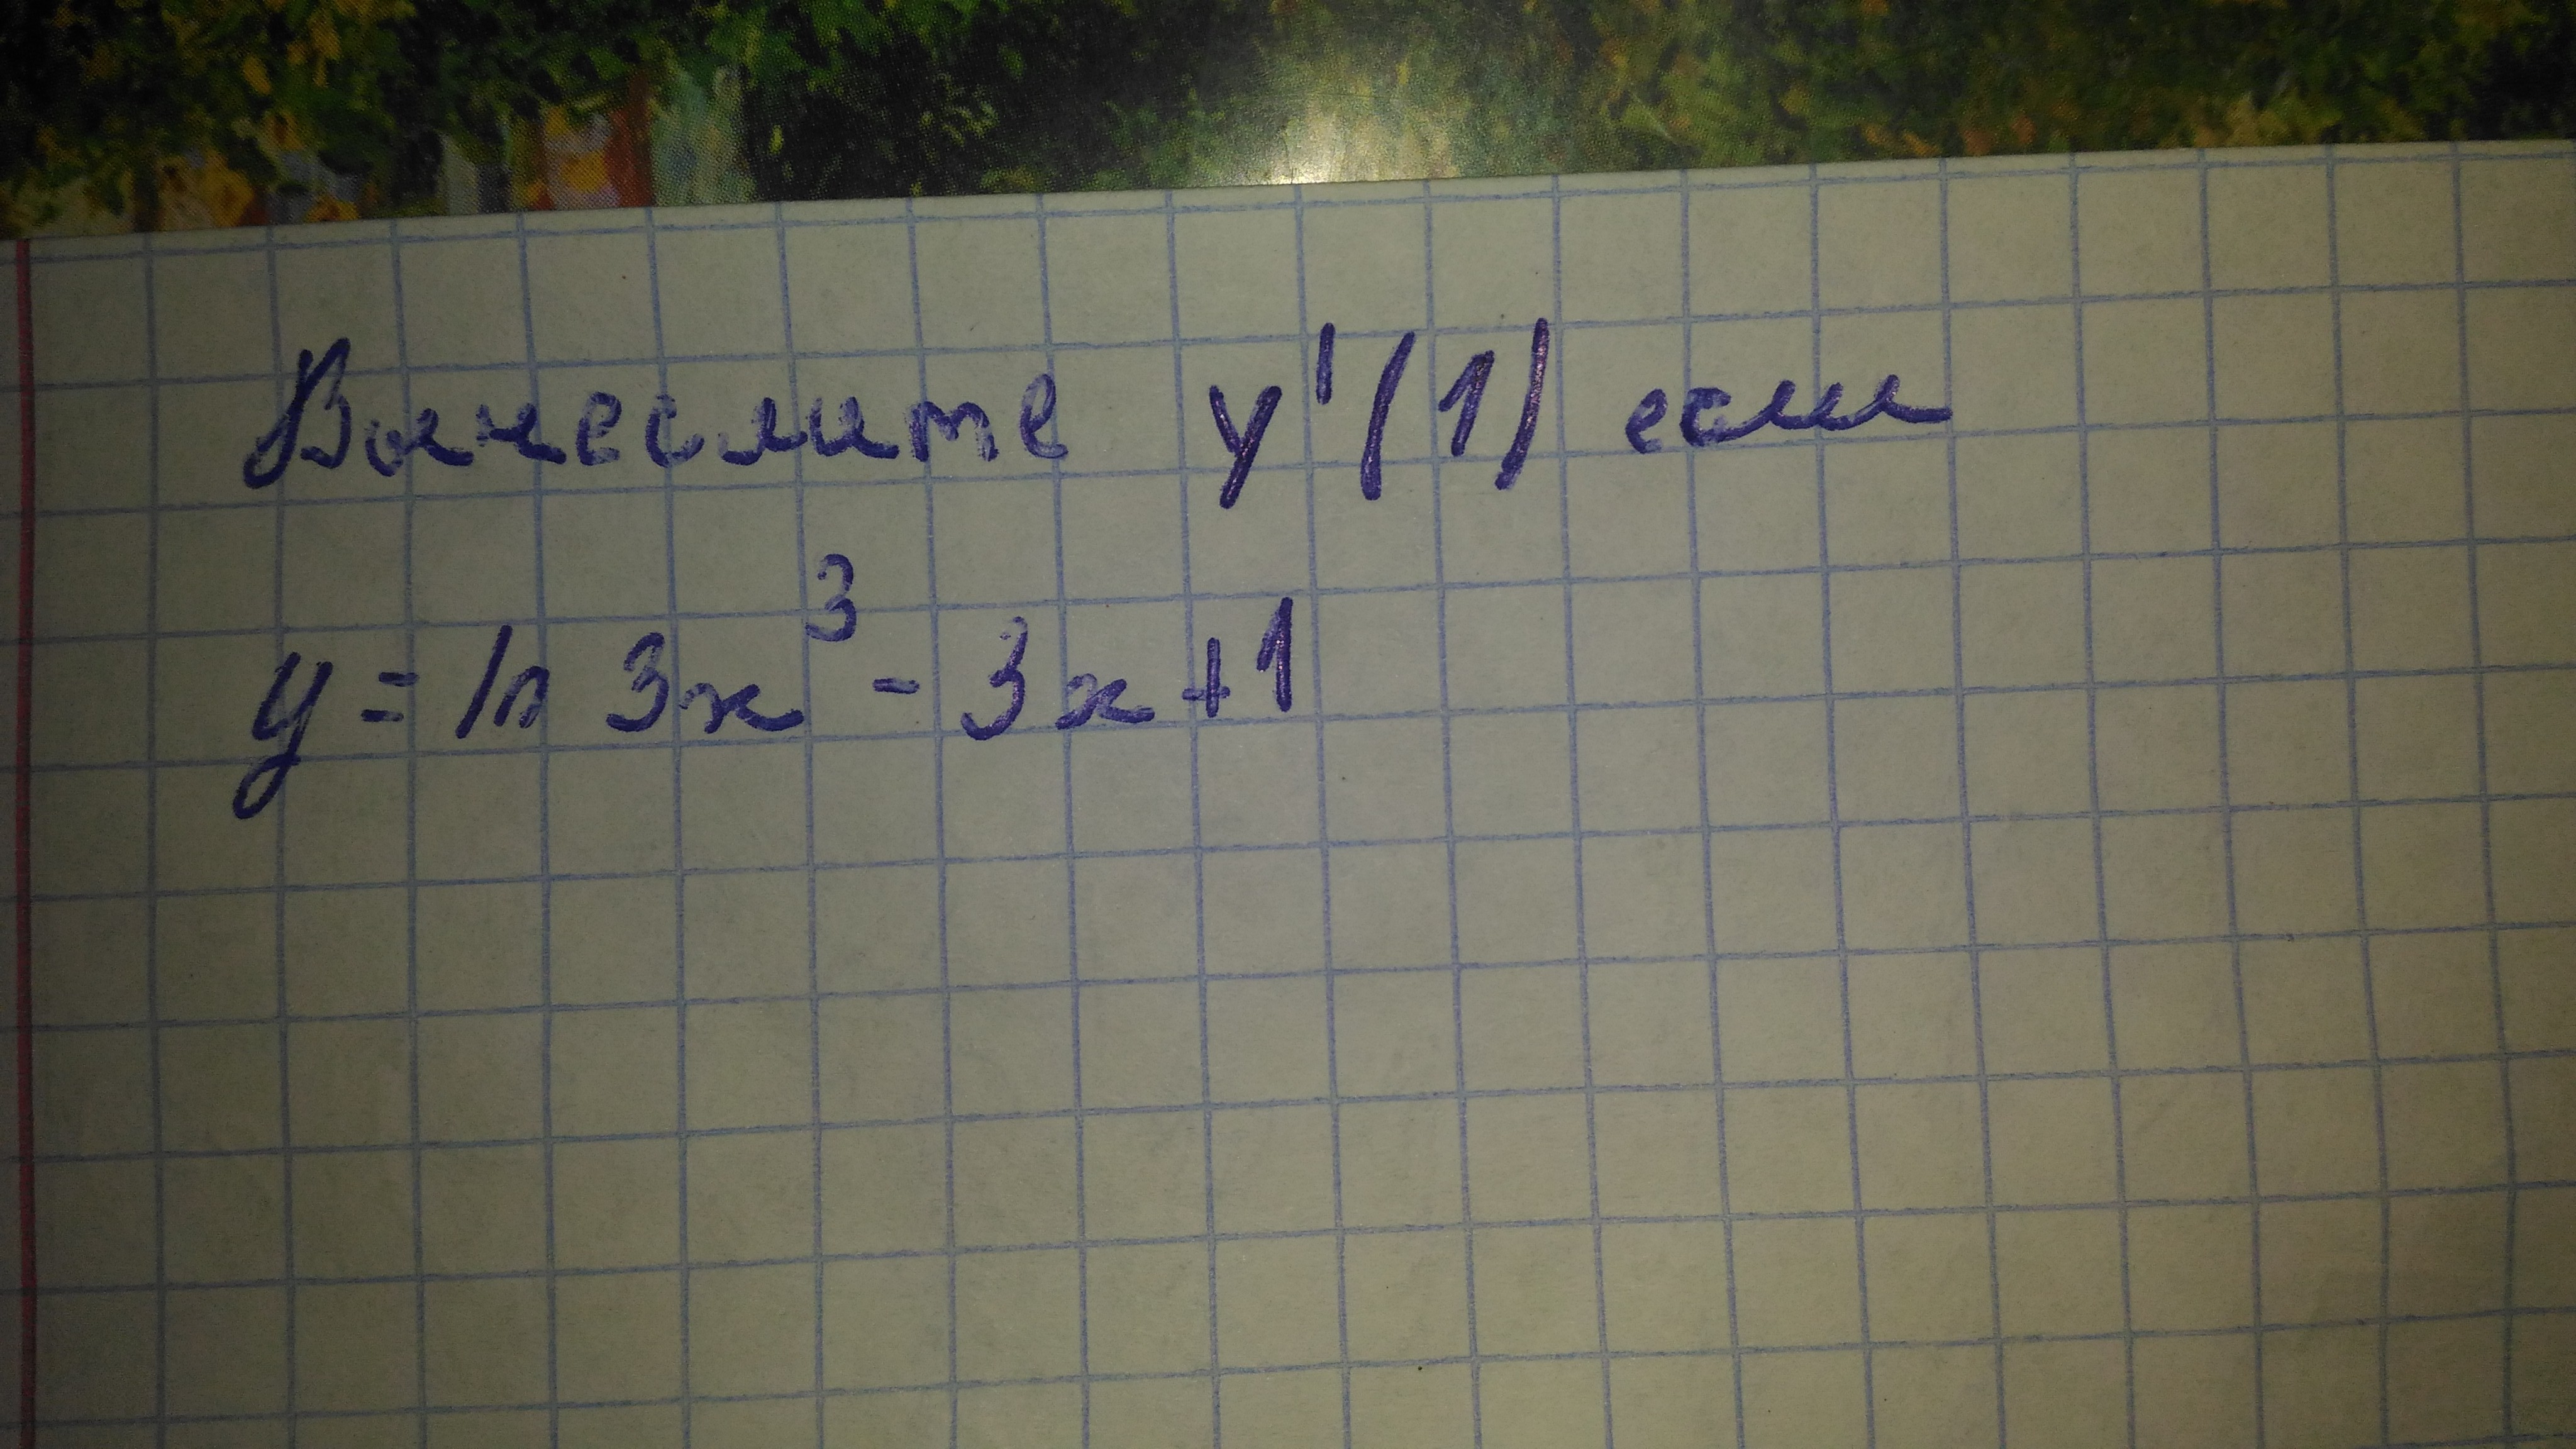 Вычеслите y'(1) если
y = ln 3x³ - 3x + 1